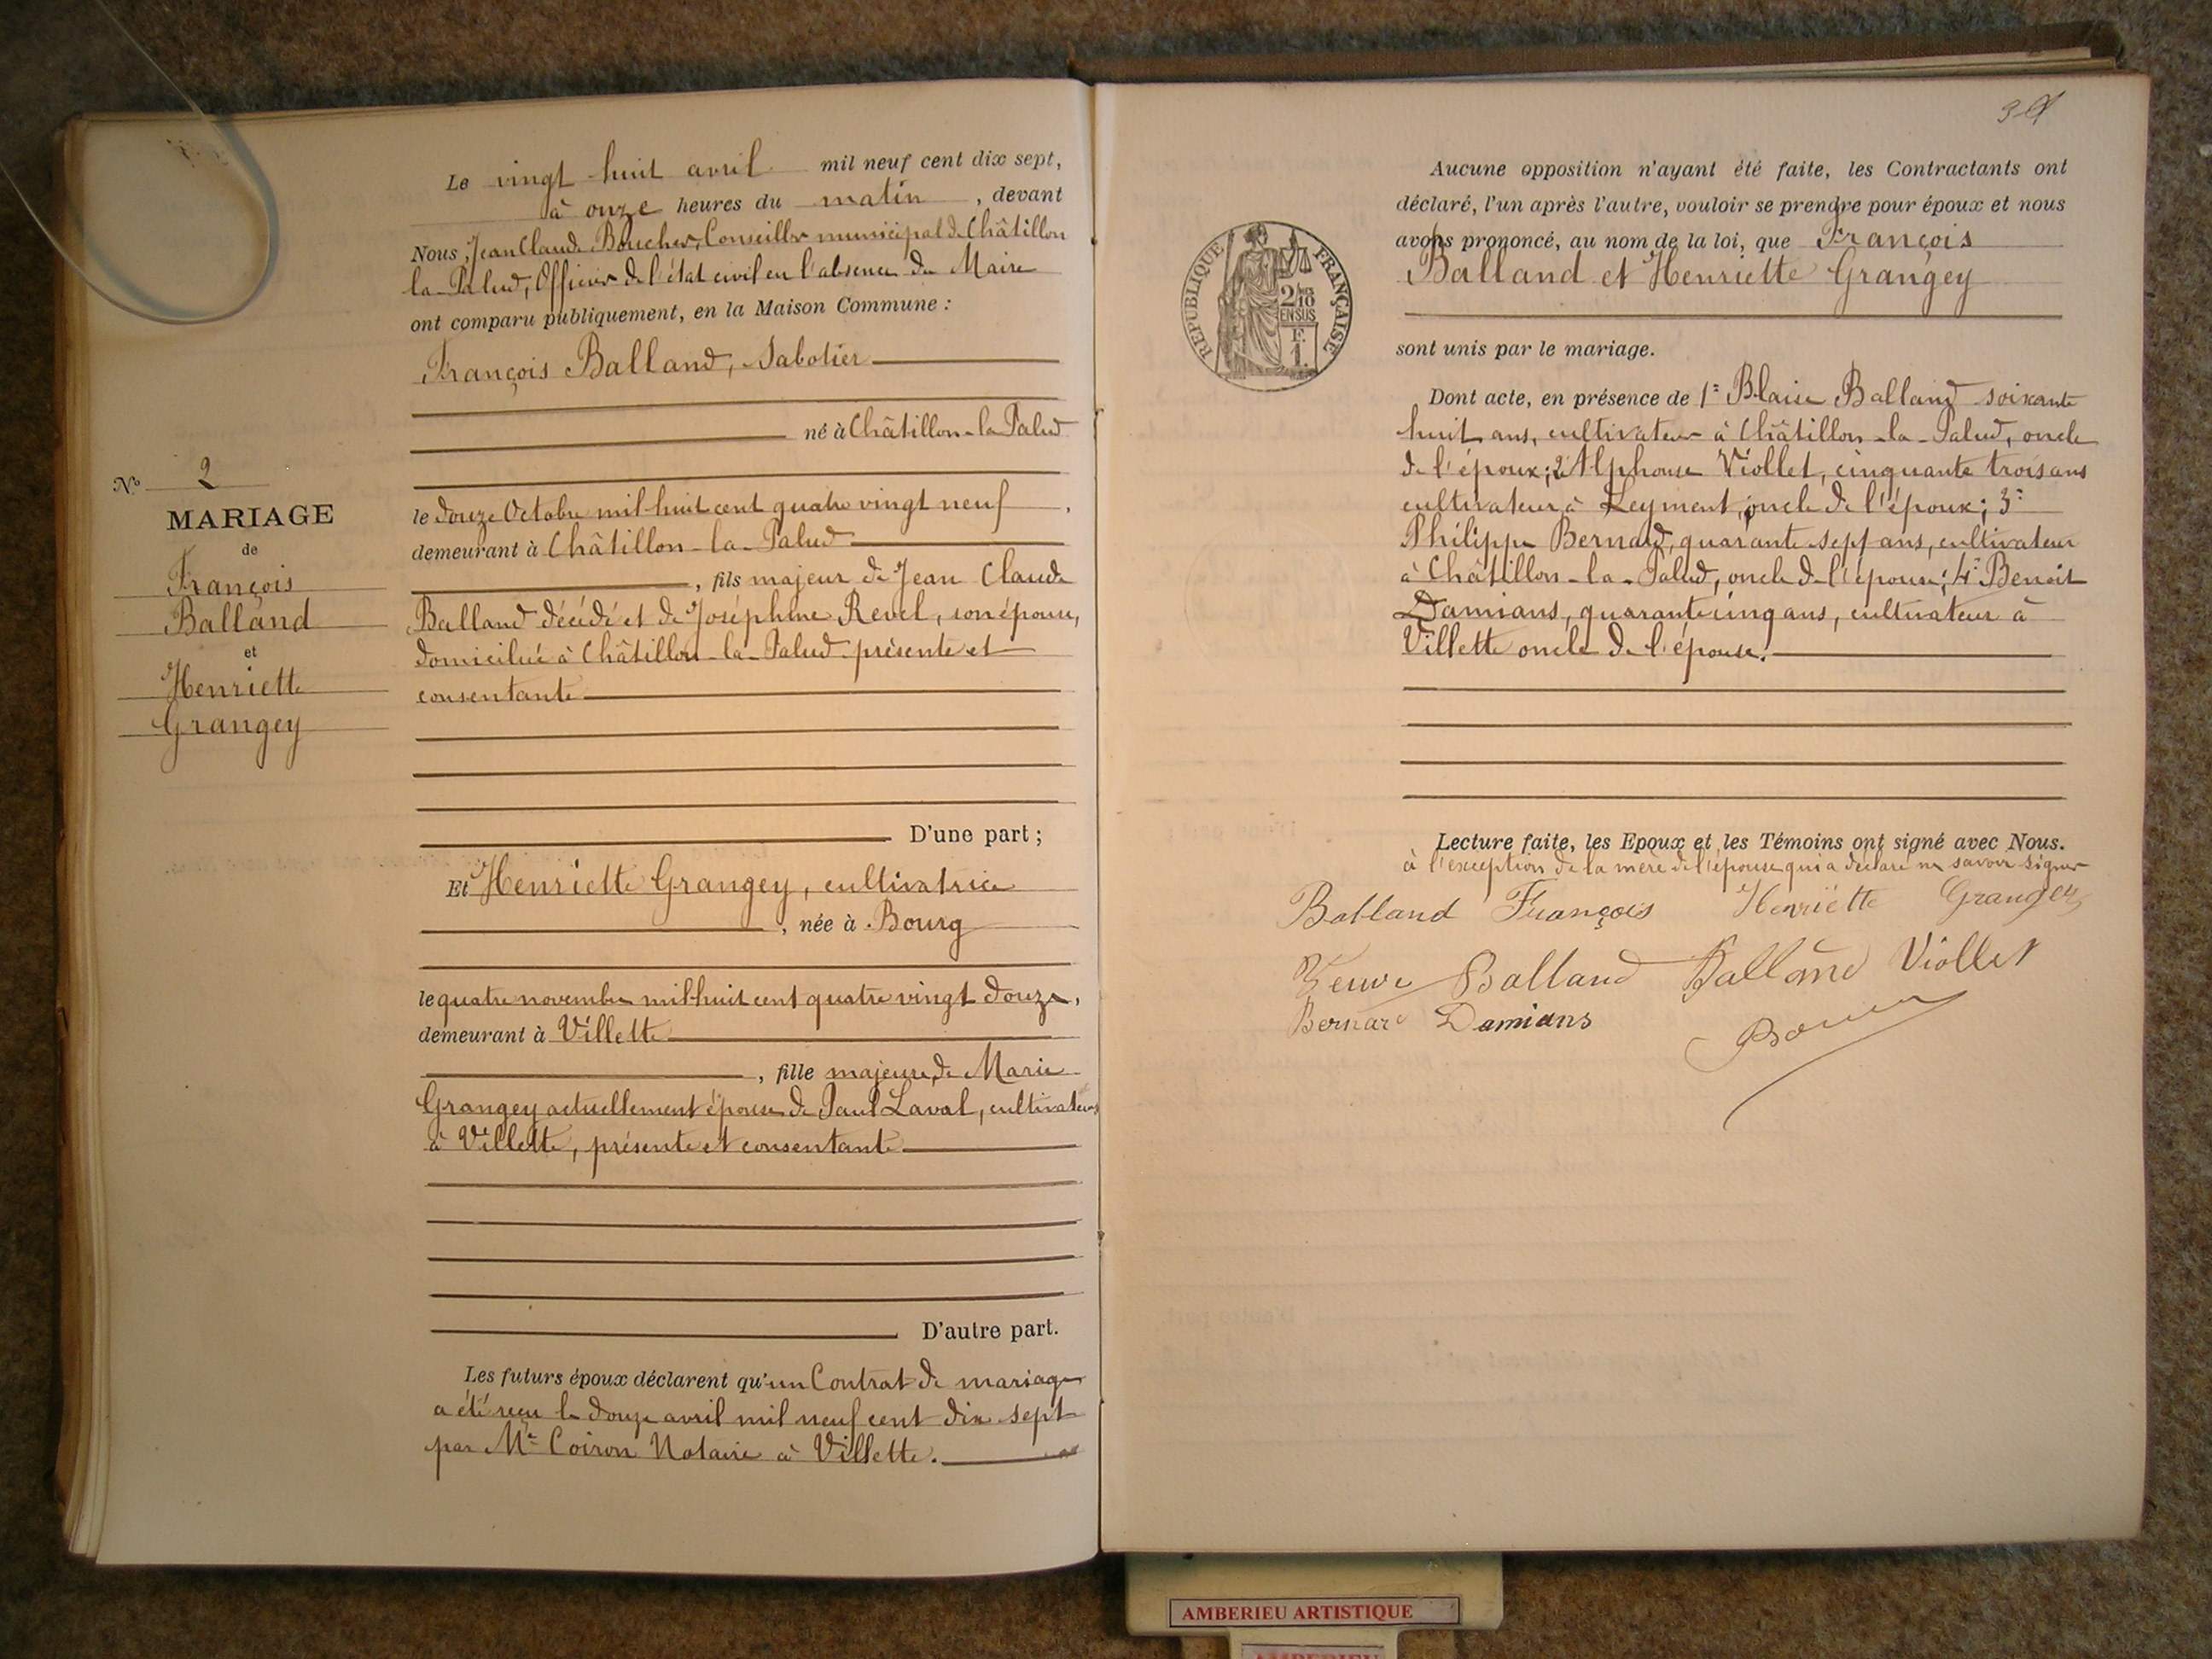 Le vingt huit avril mil neuf cent dix sept,
à onze heures du matin, devant
Nous, Jean Claude Boucher, Conseiller municipal de Châtillon
la-Palud, Officier de l'état civil en l'absence du Maire
ont comparu publiquement, en la Maison Commune :
François Balland, Sabotier
né à Châtillon-la-Palud
le douze Octobre mil huit cent quatre vingt neuf,
demeurant à Châtillon-la-Palud
, fils majeur de Jean Claude
Balland décédé et de Joséphine Revel, son épouse,
domiciliée à Châtillon-la-Palud présente et
consentante
D'une part ;
N° 2
MARIAGE
de
François
Balland
et
Henriette
Grangey
Et Henriette Grangey, cultivatrice
, née à Bourg
le quatre novembre mil huit cent quatre vingt douze,
demeurant à Villette
, fille majeure de Marie
Grangey actuellement épouse de Paul Laval, cultivateurs
à Villette, présente et consentante
D'autre part.
Les futurs époux déclarent qu'un Contrat de mariage
a été reçu le douze avril mil neuf cent dix sept
par Me Coiron Notaire à Villette.
Aucune opposition n'ayant été faite, les Contractants ont
déclaré, l'un après l'autre, vouloir se prendre pour époux et nous
avons prononcé, au nom de la loi, que François
Balland et Henriette Grangey
sont unis par le mariage.
Dont acte, en présence de 1° Blaise Balland soixante
huit ans, cultivateur à Châtillon-la-Palud, oncle
de l'époux; 2° Alphonse Viollet, cinquante trois ans
cultivateur à Leyment, oncle de l'époux; 3°
Philippe Bernard, quarante sept ans, cultivateur
à Châtillon-la-Palud, oncle de l'épouse; 4° Benoit
Damians, quarante cinq ans, cultivateur à
Villette oncle de l'épouse.
Lecture faite, les Epoux et les Témoins ont signé avec Nous.
à l'exception de la mère de l'épouse qui a déclaré ne savoir signer
Balland François Henriette Grangey
Veuve Balland Balland Viollet
Bernard Damians
REPUBLIQUE FRANÇAISE
2/10 EN SUS
F.
1.
AMBERIEU ARTISTIQUE
AMBERIEU